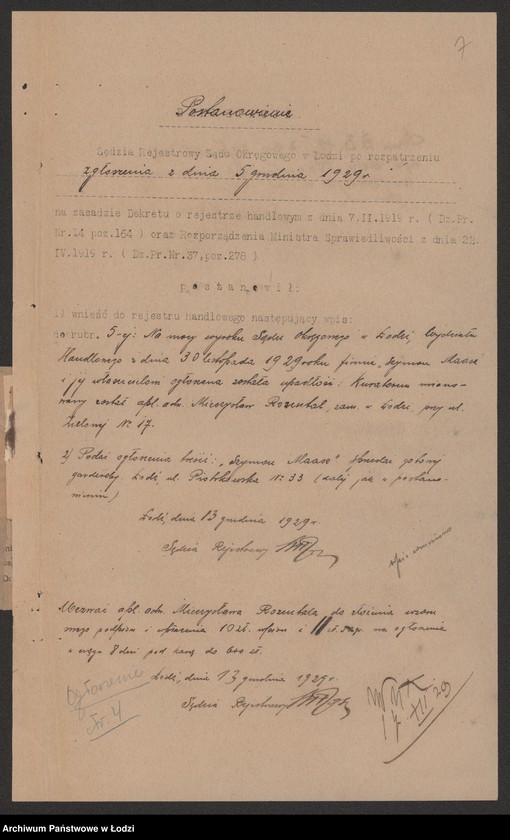 7
Postanowienie
Sędzia Rejestrowy Sądu Okręgowego w Łodzi po rozpatrzeniu
zgłoszenia z dnia 5 grudnia 1929 r.
na zasadzie Dekretu o rejestrze handlowym z dnia 7.II.1919 r. ( Dz.Pr.
Nr.14 poz.164 ) oraz Rozporządzenia Ministra Sprawiedliwości z dnia 22.
IV.1919 r. ( Dz.Pr.Nr.37,poz.278 )
P o s t a n o w i ł:
1) wnieść do rejestru handlowego następujący wpis:
do rubr. 5-ej: Na mocy wyroku Sądu Okręgowego w Łodzi, Wydziału
Handlowego z dnia 30 listopada 1929 roku firmie, Szymon Maase
i jej właścicielom ogłoszona została upadłość: Kuratorem miano-
wany został apl. adw. Mieczysław Rozental, zam. w Łodzi, przy ul.
Zielonej Nr 17.
2) Podać ogłoszenia treści: "Szymon Maase" gotowej
garderoby Łódź, ul. Piotrkowska Nr 33 (dalej jak w postano-
wieniu)
Łódź, dnia 13 grudnia 1929 r.
Sędzia Rejestrowy
Wezwać apl. adw. Mieczysława Rozentala do złożenia
podpisu i 10 zł. wpisu i 11 zł. na ogłoszenie
w ciągu 8 dni pod karą do 600 zł.
Łódź, dnia 13 grudnia 1929 r.
Sędzia Rejestrowy
Ogłoszenie
str. 4
17 XII 29
Archiwum Państwowe w Łodzi